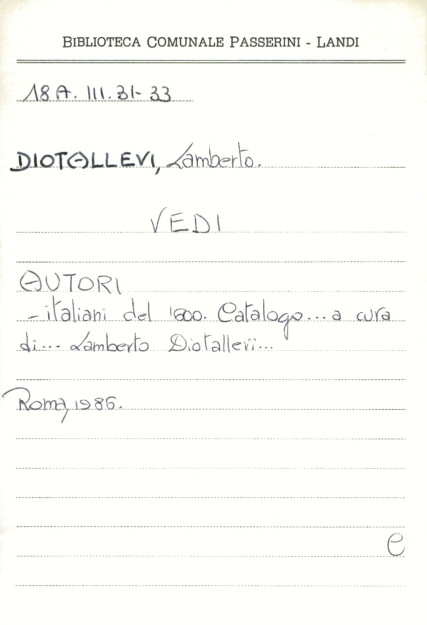 BIBLIOTECA COMUNALE PASSERINI - LANDI
18A. III. 31-33
DIOTALLEVI, Lamberto.
VEDI
AUTORI
- italiani del '600. Catalogo... a cura
di... Lamberto Diotallevi...
Roma, 1986.
e